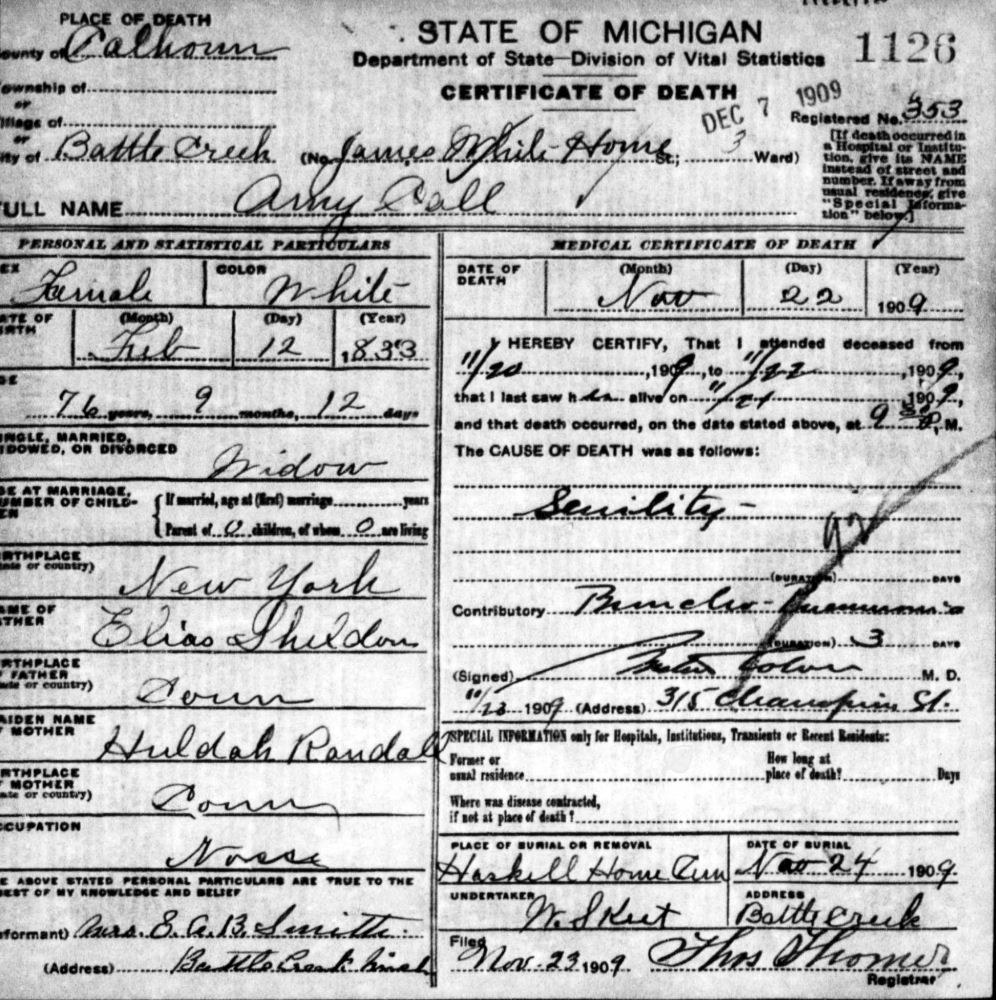 PLACE OF DEATH
STATE OF MICHIGAN
1126
ounty of Calhoun
Department of State—Division of Vital Statistics
ownship of
or
CERTIFICATE OF DEATH
DEC 7 1909
Registered No. 353
illage of
or
ity of Battle Creek (No. James White Home St.; 3 Ward)
[If death occurred in
a Hospital or Institu-
tion, give its NAME
instead of street and
number. If away from
usual residence, give
"Special Informa-
tion" below.]
FULL NAME Amy Call
PERSONAL AND STATISTICAL PARTICULARS
EX Female
COLOR White
ATE OF
IRTH
(Month) (Day) (Year)
Feb 12 1833
GE
76 years, 9 months, 12 days
INGLE, MARRIED,
IDOWED, OR DIVORCED
Widow
GE AT MARRIAGE,
UMBER OF CHILD-
EN
If married, age at (first) marriage years
Parent of 0 children, of whom 0 are living
IRTHPLACE
tate or country)
New York
AME OF
ATHER
Elias Sheldon
IRTHPLACE
F FATHER
tate or country)
Conn
AIDEN NAME
F MOTHER
Huldah Randall
IRTHPLACE
F MOTHER
tate or country)
Conn
CCUPATION
E ABOVE STATED PERSONAL PARTICULARS ARE TRUE TO THE
EST OF MY KNOWLEDGE AND BELIEF
nformant) Mrs. E. A. B. Smith
(Address) Battle Creek Mich
MEDICAL CERTIFICATE OF DEATH
DATE OF
DEATH
(Month) (Day) (Year)
Nov 22 1909
I HEREBY CERTIFY, That I attended deceased from
11/20, 1909, to 11/22, 1909,
that I last saw her alive on 11/21 1909,
and that death occurred, on the date stated above, at 9 30 P. M.
The CAUSE OF DEATH was as follows:
Senility -
92
(DURATION) DAYS
Contributory Broncho-Pneumonia
(DURATION) 3 DAYS
(Signed) M. D.
11/23 1909 (Address) 315 Champion St.
SPECIAL INFORMATION only for Hospitals, Institutions, Transients or Recent Residents:
Former or
usual residence
How long at
place of death? Days
Where was disease contracted,
if not at place of death?
PLACE OF BURIAL OR REMOVAL
Haskell Home Cem
DATE OF BURIAL
Nov 24 1909
UNDERTAKER
ADDRESS
Battle Creek
Filed
Nov. 23 1909 Thos Thorner
Registrar